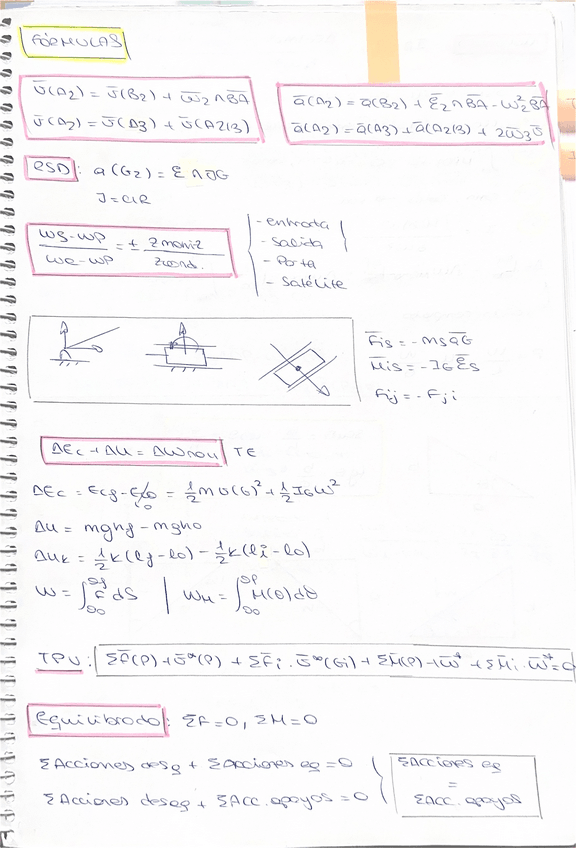 FÓRMULAS
v̄(A2) = v̄(B2) + ω̄2 ∧ B̄Ā
v̄(A2) = v̄(A3) + v̄(A2/3)
ā(A2) = ā(B2) + ε̄2 ∧ B̄Ā - ω²2 B̄Ā
ā(A2) = ā(A3) + ā(A2/3) + 2ω̄3 v̄
RSD: a(G2) = ε ∧ JG
J = CIR
(ωS - ωP)/(ωe - ωP) = ± Z motriz / Z cond.
- entrada
- Salida
- Porta
- Satélite
F̄is = - ms āG
M̄is = - IG ε̄s
Fij = - Fji
ΔEc + ΔU = ΔWnou TE
ΔEc = Ecf - Ec0 = ½ m v(G)² + ½ IG ω²
0
ΔU = mghf - mgh0
ΔUk = ½ k (lf - lo) - ½ k (li - lo)
W = ∫ F̄ dS | WM = ∫ M(θ) dθ
TPV: ΣF̄(P) + v̄*(P) + ΣF̄i · v̄*(Gi) + ΣM̄(P) + ω̄* + ΣM̄i · ω̄* = 0
Equilibrado: ΣF = 0, ΣM = 0
ΣAcciones deseq + ΣAcciones eq = 0
ΣAcciones deseq + ΣAcc. apoyos = 0
ΣAcciones eq
=
ΣAcc. apoyos